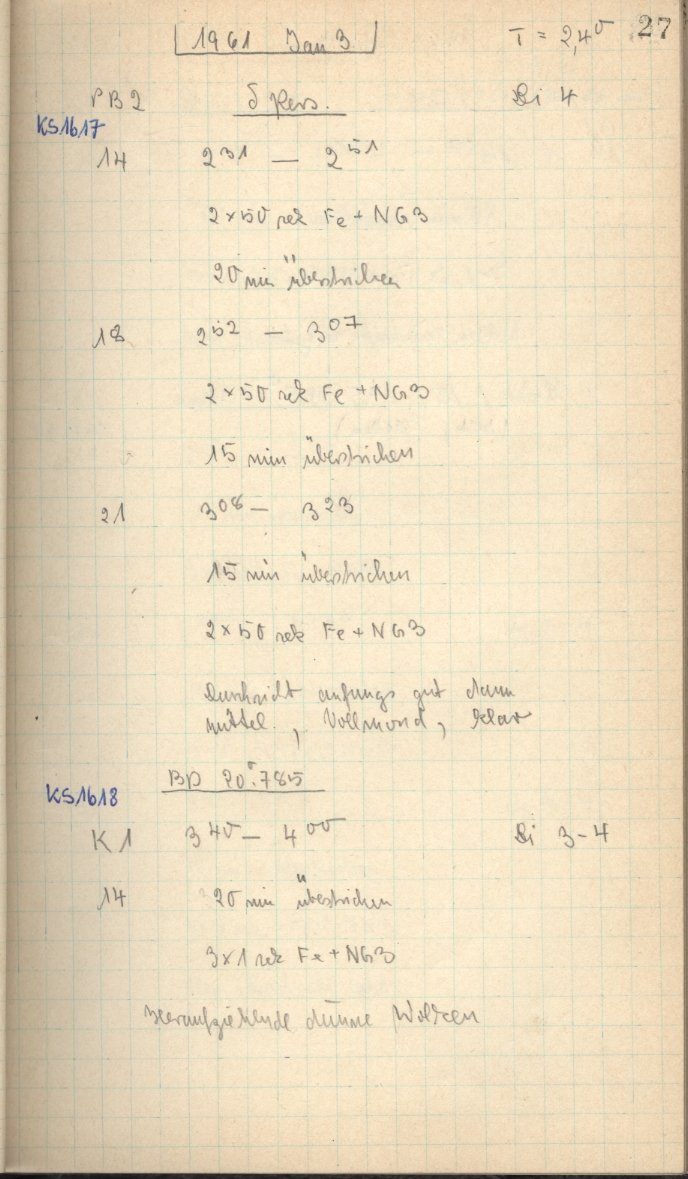 27
1961 Jan 3.
T = 2,40
PB2 δ Pers. Si 4
KS1617
14 2 31 — 2 51
2×50 sek Fe + NG3
20 min überstrichen
18 2 52 — 3 07
2×50 sek Fe + NG3
15 min überstrichen
21 3 08 — 3 23
15 min überstrichen
2×50 sek Fe + NG3
Durchsicht anfangs gut dann
mittel., Vollmond, klar
BD 20°.785
KS1618
K1 3 40 — 4 00 Si 3-4
14 20 min überstrichen
3×1 sek Fe + NG3
Heraufziehende dünne Wolken